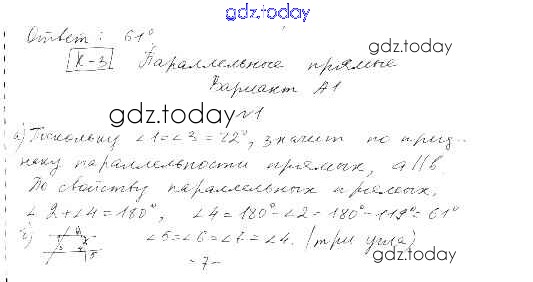 gdz.today
Ответ: 61°
К-3 Параллельные прямые
gdz.today
Вариант А1
gdz.today
№1
а) Поскольку ∠1=∠3=22°, значит по приз-
наку параллельности прямых, a||b.
По свойству параллельных прямых,
∠2+∠4=180°, ∠4=180°-∠2=180°-119°=61°
б) ∠5=∠6=∠7=∠4. (три угла)
gdz.today
-7-